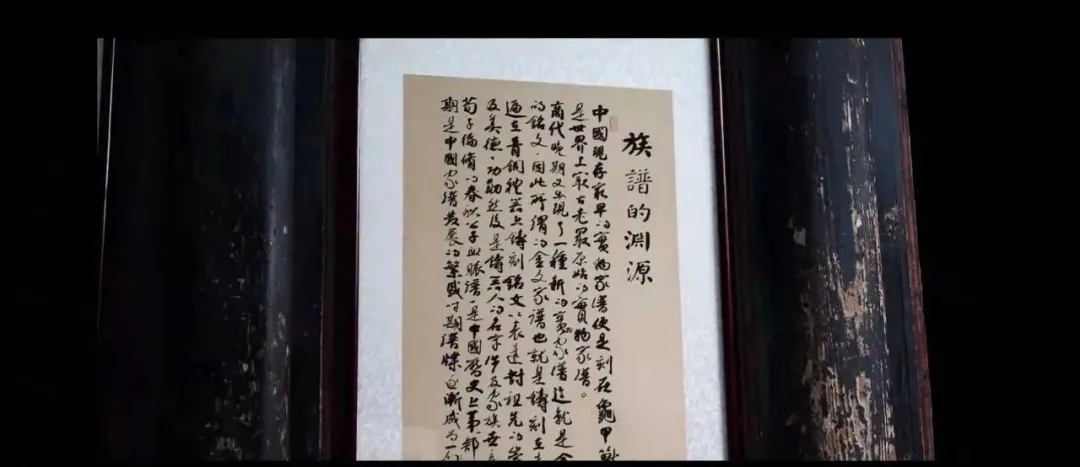 族譜的淵源
中國現存最早的實物家譜便是刻在龜甲
是世界上最古老最原始的實物家譜。
商代晚期又出現了一種新的實物家譜這就是金
的銘文,因此所謂的金文家譜也就是鑄刻在青
遍在青銅禮器上鑄刻銘文以表達對祖先的崇
及美德、功勛然後是鑄器人的名字件及家族世
荀子編修的春秋公子血脈譜,是中國歷史上第一部
期是中國家譜發展的繁盛時期譜牒逐漸成為一